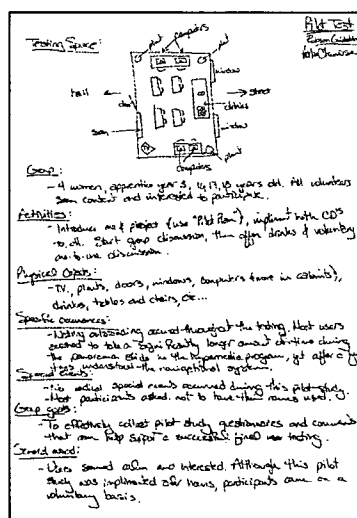 Pilot Test
Testing Space:
plant
computers
plant
window
hall
door
street
drinks
room
window
TV
computers
plant
Group:
- 4 women, apprentice year 3, 16, 17, 18 years old. All volunteers
seem content and interested to participate.
Activities:
- Introduce me & project (use "Pilot Plan"), implement with CD's
to all. Start group discussion, then offer drinks & voluntary
one-to-one discussion.
Physical Objects:
- TV, plants, doors, windows, computers (more in cabinets),
drinks, tables and chairs, etc...
Specific occurrences:
- Nothing outstanding occurred throughout the testing. Most users
seemed to take a significantly longer amount of time during
the panorama slide in the hypermedia program, yet after a
understand the navigational system.
Special events:
- No radical special events occurred during this pilot study.
Most participants asked not to have their names used.
Group goals:
- To effectively collect pilot study questionnaires and comments
that can help support a successful final testing.
General mood:
- Users seemed calm and interested. Although this pilot
study was implemented after hours, participants came on a
voluntary basis.